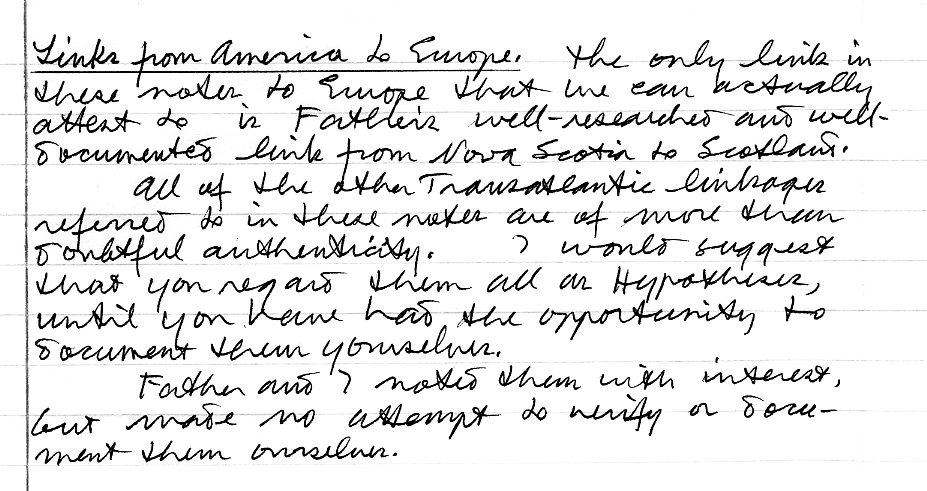 Links from America to Europe. The only link in
these notes to Europe that we can actually
attest to is Father's well-researched and well-
documented link from Nova Scotia to Scotland.
All of the other Transatlantic linkages
referred to in these notes are of more than
doubtful authenticity. I would suggest
that you regard them all as Hypotheses,
until you have had the opportunity to
document them yourselves.
Father and I noted them with interest,
but made no attempt to verify or docu-
ment them ourselves.